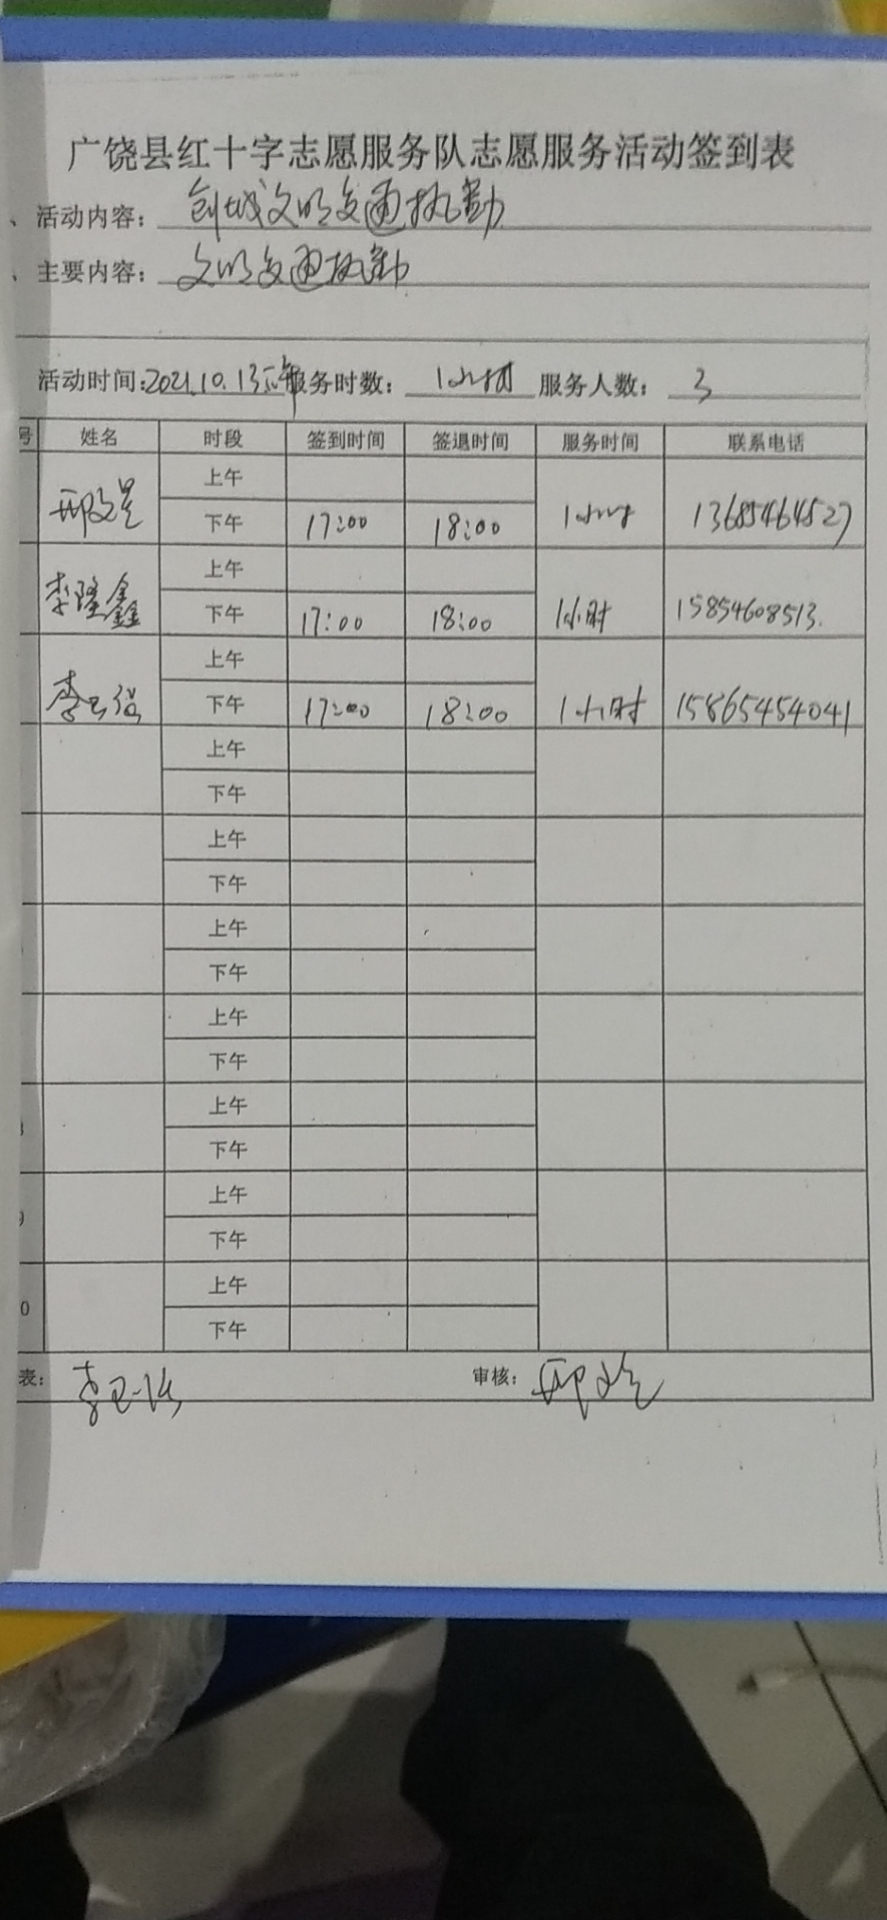 广饶县红十字志愿服务队志愿服务活动签到表
、活动内容：创城文明交通执勤
、主要内容：文明交通执勤
活动时间：2021.10.13下午服务时数：1小时 服务人数：3
号 姓名 时段 签到时间 签退时间 服务时间 联系电话
上午
邢文 下午 17:00 18:00 1小时 13685464527
上午
李隆鑫 下午 17:00 18:00 1小时 15854608513.
上午
李 下午 17:00 18:00 1小时 15865454041
上午
下午
上午
下午
上午
下午
上午
下午
上午
下午
9 上午
下午
0 上午
下午
表： 李 审核： 邢文